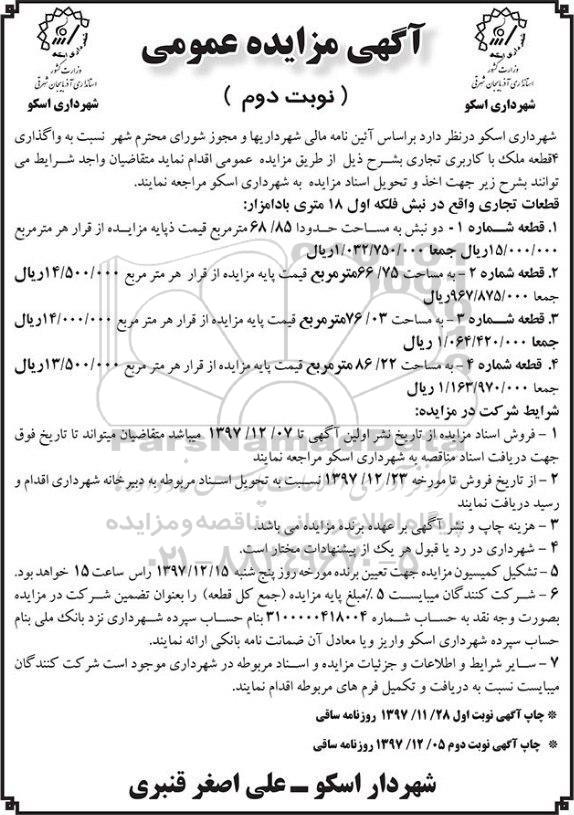 آگهی مزایده عمومی
( نوبت دوم )
وزارت کشور
استانداری آذربایجان شرقی
شهرداری اسکو
وزارت کشور
استانداری آذربایجان شرقی
شهرداری اسکو
شهرداری اسکو درنظر دارد براساس آئین نامه مالی شهرداریها و مجوز شورای محترم شهر نسبت به واگذاری
۴قطعه ملک با کاربری تجاری بشرح ذیل از طریق مزایده عمومی اقدام نماید متقاضیان واجد شرایط می
توانند بشرح زیر جهت اخذ و تحویل اسناد مزایده به شهرداری اسکو مراجعه نمایند.
قطعات تجاری واقع در نبش فلکه اول ۱۸ متری بادامزار:
۱. قطعه شماره ۱- دو نبش به مساحت حدودا ۶۸/۸۵ مترمربع قیمت ذپایه مزایده از قرار هر مترمربع
۱۵/۰۰۰/۰۰۰ریال جمعا ۱/۰۳۲/۷۵۰/۰۰۰ریال
۲. قطعه شماره ۲- به مساحت ۶۶/۷۵مترمربع قیمت پایه مزایده از قرار هر متر مربع ۱۴/۵۰۰/۰۰۰ریال
جمعا ۹۶۷/۸۷۵/۰۰۰ریال
۳. قطعه شماره ۳- به مساحت ۷۶/۰۳مترمربع قیمت پایه مزایده از قرار هر متر مربع ۱۴/۰۰۰/۰۰۰ریال
جمعا ۱/۰۶۴/۴۲۰/۰۰۰ ریال
۴. قطعه شماره ۴- به مساحت ۸۶/۲۲ مترمربع قیمت پایه مزایده از قرار هر متر مربع ۱۳/۵۰۰/۰۰۰ریال
جمعا ۱/۱۶۳/۹۷۰/۰۰۰ ریال
شرایط شرکت در مزایده:
۱ - فروش اسناد مزایده از تاریخ نشر اولین آگهی تا ۱۳۹۷/۱۲/۰۷ میباشد متقاضیان میتواند تا تاریخ فوق
جهت دریافت اسناد مناقصه به شهرداری اسکو مراجعه نمایند
۲ - از تاریخ فروش تا مورخه ۱۳۹۷/۱۲/۲۳ نسبت به تحویل اسناد مربوطه به دبیرخانه شهرداری اقدام و
رسید دریافت نمایند
۳ - هزینه چاپ و نشر آگهی بر عهده برنده مزایده می باشد.
۴ - شهرداری در رد یا قبول هر یک از پیشنهادات مختار است.
۵ - تشکیل کمیسیون مزایده جهت تعیین برنده مورخه روز پنج شنبه ۱۳۹۷/۱۲/۱۵ راس ساعت ۱۵ خواهد بود.
۶ - شرکت کنندگان میبایست ۵٪مبلغ پایه مزایده (جمع کل قطعه) را بعنوان تضمین شرکت در مزایده
بصورت وجه نقد به حساب شماره ۳۱۰۰۰۰۰۴۱۸۰۰۴ بنام حساب سپرده شهرداری نزد بانک ملی بنام
حساب سپرده شهرداری اسکو واریز ویا معادل آن ضمانت نامه بانکی ارائه نمایند.
۷ - سایر شرایط و اطلاعات و جزئیات مزایده و اسناد مربوطه در شهرداری موجود است شرکت کنندگان
میبایست نسبت به دریافت و تکمیل فرم های مربوطه اقدام نمایند.
* چاپ آگهی نوبت اول ۱۳۹۷/۱۱/۲۸ روزنامه ساقی
* چاپ آگهی نوبت دوم ۱۳۹۷/۱۲/۰۵ روزنامه ساقی
شهردار اسکو ـ علی اصغر قنبری
ParsNamadData
پایگاه اطلاع رسانی مناقصه و مزایده
۰۲۱-۸۸۳۴۹۶۷۰-۵